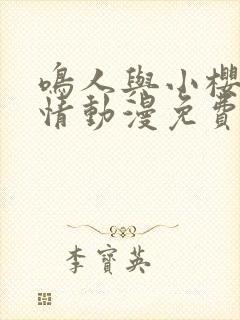 鳴人與小櫻
情動漫免費
李寶英